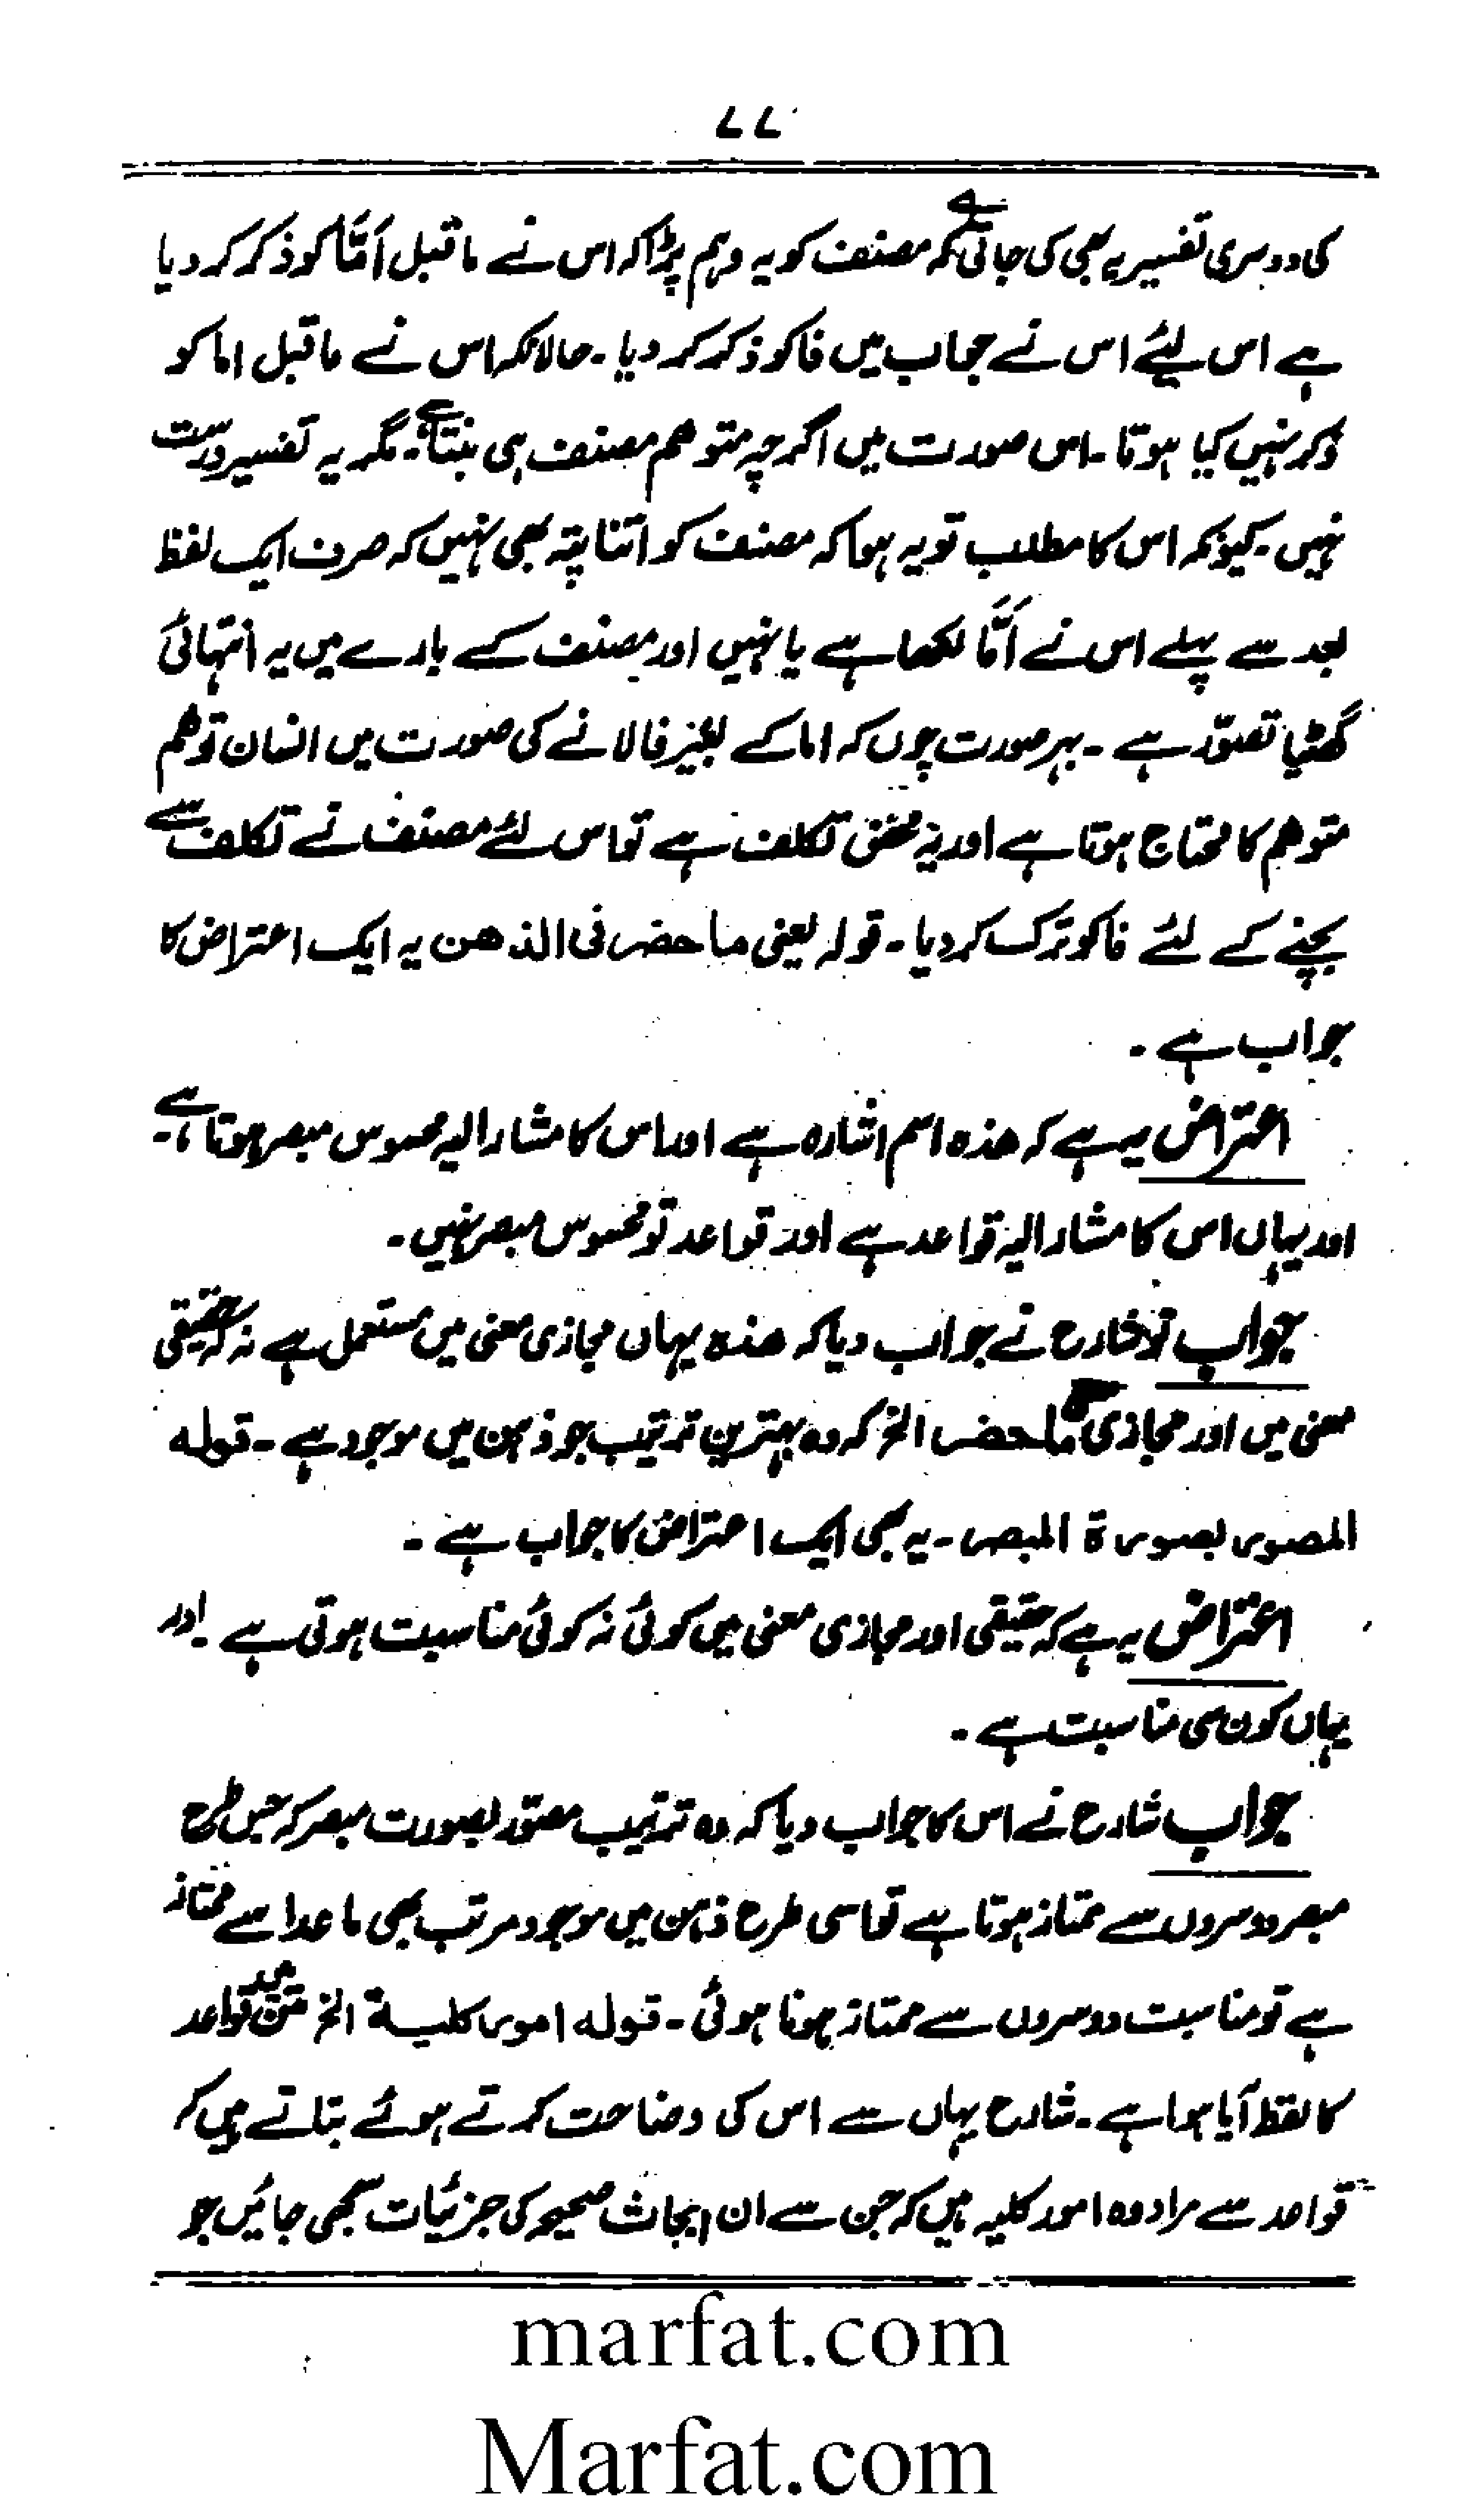 ۷۷
کی دوسری تفسیر یہ بھی کی جاتی ہے کہ مصنف کو یہ وہم پڑا کہ اس نے ما قبل اَمَّا کو ذکر کر دیا
ہے اس لیئے اس نے جواب میں فا کو ذکر کر دیا ۔ حالانکہ اس نے ما قبل اما کو
ذکر نہیں کیا ہوتا ۔ اس صورت میں اگرچہ متوھم مصنف ہی بنتا ہے ۔ مگر یہ تفسیر درست
نہیں ۔ کیونکہ اس کا مطلب تو یہ ہوا کہ مصنف کو اتنا پتہ بھی نہیں کہ صرف ایک لفظ
بعد سے پہلے اس نے اَمَّا لکھا ہے یا نہیں اور مصنف کے بارے میں یہ انتہائی
گھٹیا تصوّر ہے ۔ بہر صورت چوں کہ اما کے بغیر فا لانے کی صورت میں انسان توھم
متوھم کا محتاج ہوتا ہے اور یہ محض تکلف ہے تو اس لئے مصنف نے تکلف سے
بچنے کے لئے فا کو ترک کر دیا ۔ قولہ یعنی ما حضر فی الذھن یہ ایک اعتراض کا
جواب ہے ۔
اعتراض یہ ہے کہ ھذہ اسم اشارہ ہے اور اس کا مشار الیہ محسوس مبصر ہوتا ہے ۔
اور یہاں اس کا مشار الیہ قواعد ہے اور قواعد تو محسوس مبصر نہیں ۔
جواب تو شارح نے جواب دیا کہ ھذہ یہاں مجازی معنی میں مستعمل ہے نہ کہ حقیقی
معنی میں اور مجازی ما حضر الخ کہ وہ بہترین ترتیب جو ذہن میں موجود ہے ۔ قولہ
المصور بصورۃ المبصر ۔ یہ بھی ایک اعتراض کا جواب ہے ۔
اعتراض یہ ہے کہ حقیقی اور مجازی معنی میں کوئی نہ کوئی مناسبت ہوتی ہے ۔ اور
یہاں کون سی مناسبت ہے ۔
جواب شارح نے اس کا جواب دیا کہ وہ ترتیب مصور بصورت مبصر کہ جس طرح
مبصر دوسروں سے ممتاز ہوتا ہے تو اسی طرح ذہن میں موجود مرتب بھی ما عدا سے ممتاز
ہے تو مناسبت دوسروں سے ممتاز ہونا ہوئی ۔ قولہ امور کلیۃ الخ متن میں قواعد
کا لفظ آیا ہوا ہے ۔ شارح یہاں سے اس کی وضاحت کرتے ہوئے بتاتے ہیں کہ
قواعد سے مراد وہ امور کلیہ ہیں کہ جن سے ان ابحاث صحیحہ کی جزئیات سمجھی جائیں جو
marfat.com
Marfat.com